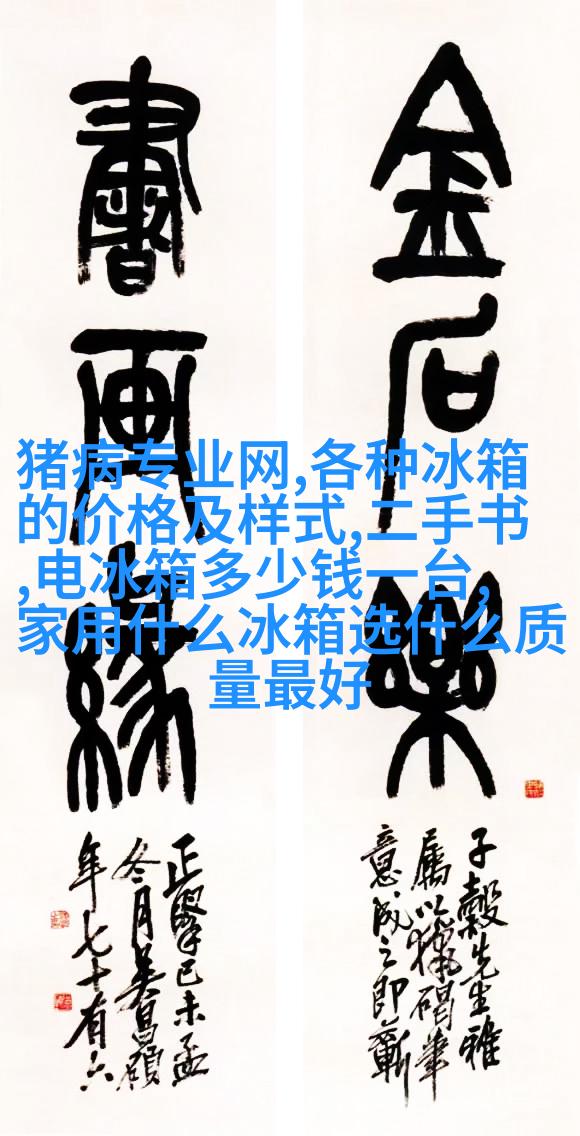 金石樂
子穀先生雅
屬以獵碣筆
意成之即蘄
書画緣
正擘己未孟
冬月吳昌碩
年七十有六
猪病专业网,各种冰箱
的价格及样式,二手书
,电冰箱多少钱一台,
家用什么冰箱选什么质
量最好